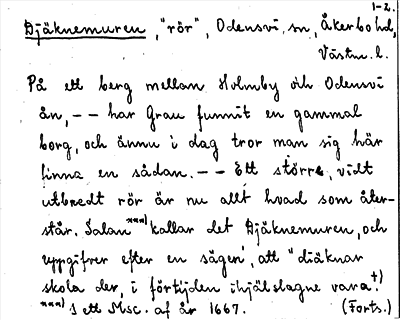 1-2.
Djäknemuren, "rör", Odensvi sn, Åkerbo hd,
Västm. l.
På ett berg mellan Holmby och Odensvi
ån, -- har Grau funnit en gammal
borg, och ännu i dag tror man sig här
finna en sådan. -- Ett större, vidt
utbredt rör är nu allt hvad som åter-
står. Salan ***) kallar det Djäknemuren, och
uppgifver efter en sägen, att "diäknar
skola der, i förtijden ihjälslagne vara." †)
***) I ett Msc. af år 1667. (Forts.)